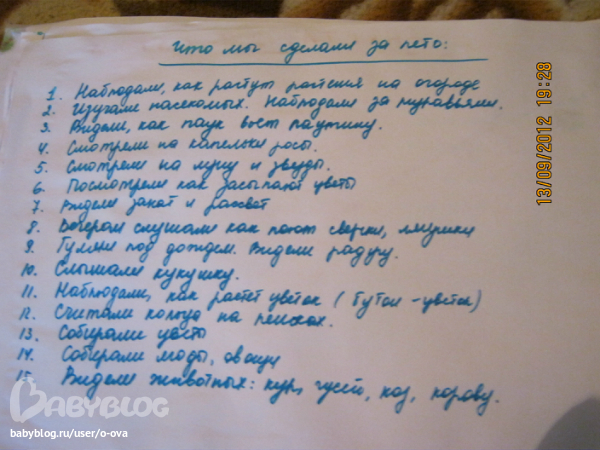 Что мы сделали за лето:
1. Наблюдали, как растут растения на огороде
2. Изучали насекомых. Наблюдали за муравьями.
3. Видели, как паук вьёт паутину.
4. Смотрели на капельки росы.
5. Смотрели на луну и звезды.
6. Посмотрели как засыпают цветы
7. Видели закат и рассвет
8. Вечером слушали как поют сверчки, лягушки
9. Гуляли под дождем. Видели радугу.
10. Слышали кукушку.
11. Наблюдали, как растет цветок (бутон - цветок)
12. Считали кольца на пеньках.
13. Собирали
14. Собирали ягоды, овощи
15. Видели животных: кур, гусей, коз, корову.
13/09/2012 19:28
BABYBLOG
babyblog.ru/user/o-ova